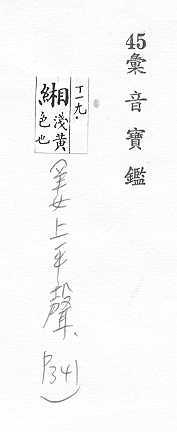 45彙音寶鑑
丁一九.
緗淺黃色也
姜上平聲、
P341)